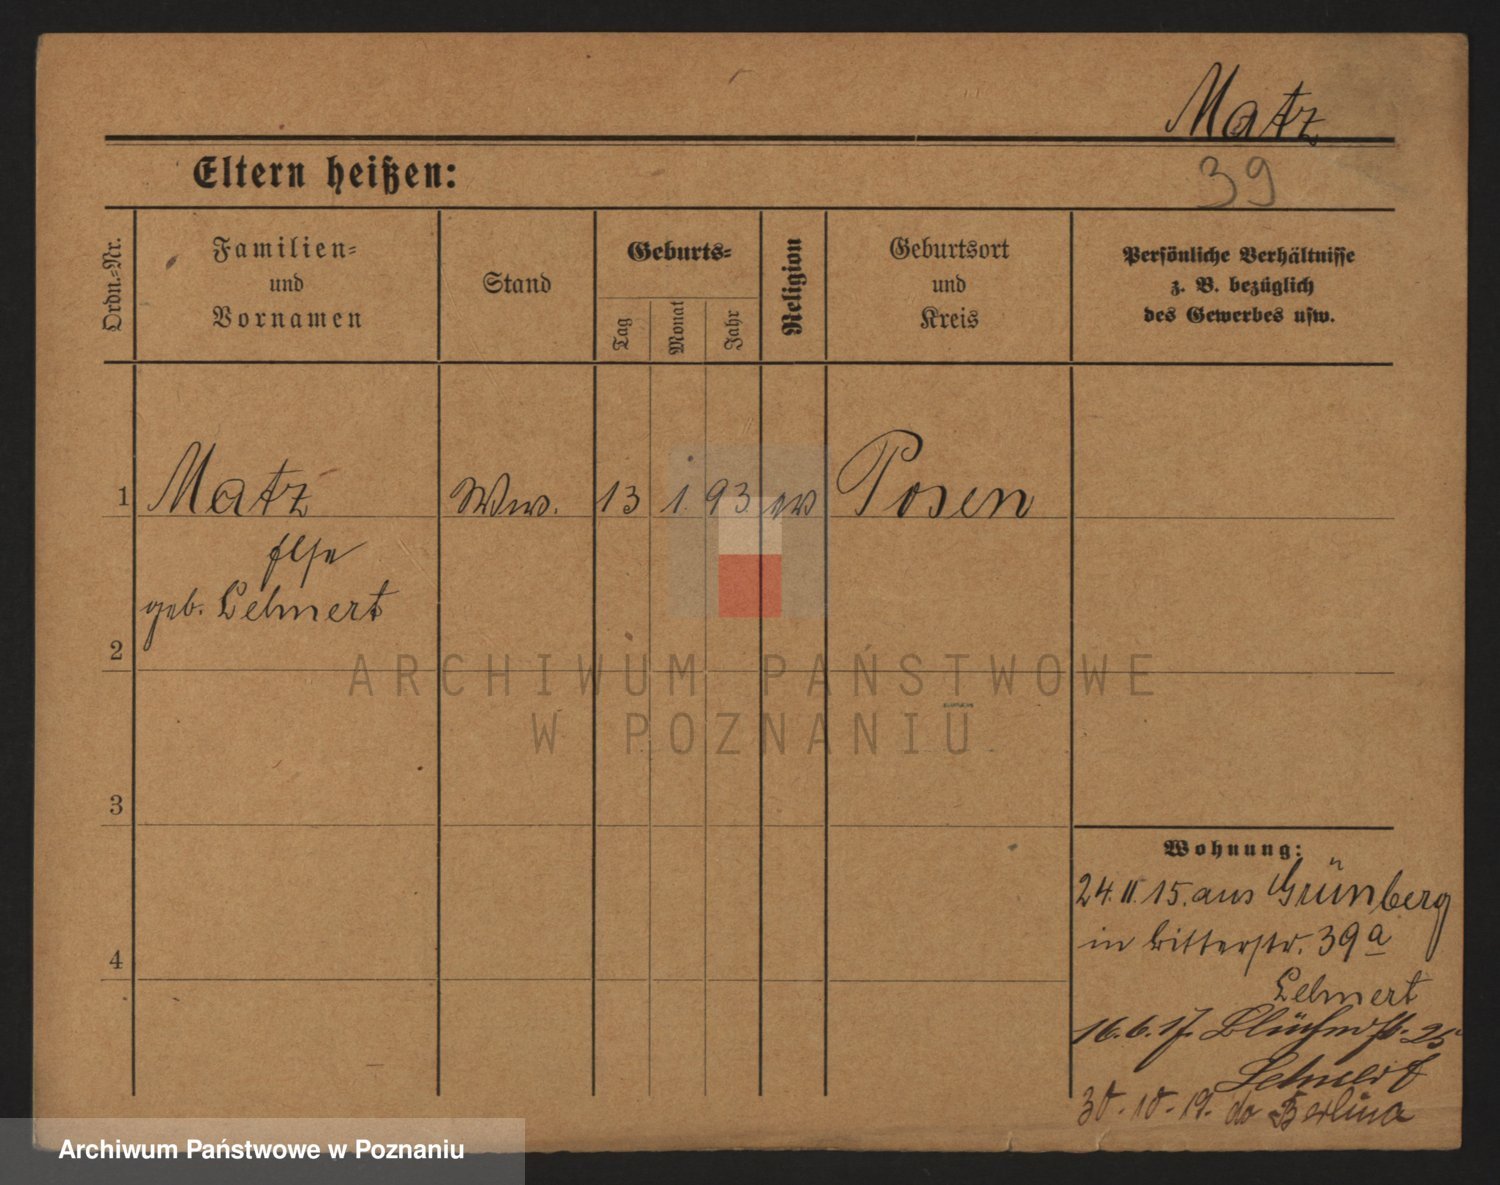 Matz
39
Eltern heißen:
Ordn.-Nr.
Familien-
und
Vornamen
Stand
Geburts-
Tag
Monat
Jahr
Religion
Geburtsort
und
Kreis
Persönliche Verhältnisse
z. B. bezüglich
des Gewerbes usw.
1 Matz Ww. 13 1. 93 ev Posen
Else
geb. Lehnert
2
3
4
Wohnung:
24. II. 15. aus Grünberg
in Ritterstr. 39a
Lehnert
16.6.17. Blücherstr. 25
Lehnert
30.10.19. do Berlina
ARCHIWUM PAŃSTWOWE
W POZNANIU
Archiwum Państwowe w Poznaniu